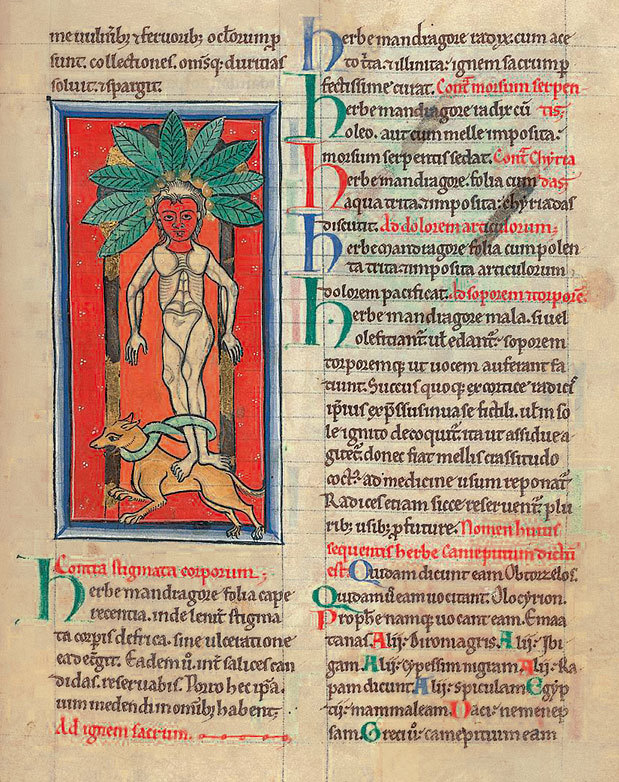 me uulnib; ⁊ feruorib; oc̄lorum p
sunt. collectiones. om̄sq; duritias
soluit. ⁊ spargit.
Contra stigmata corporum;
Herbe mandragore folia cape
recentia. inde lenit̄ stigma
ta corpis defrica. sine ulceratione
ea det̄git. Eadem
didas. reseruabis. Porro hec ip̄a.
uim medendi in omib; habent;
Ad ignem sacrum.
Herbe mandragore radix. cum ace
to t̄ta. ⁊ illinita: ignem sacrum p
fectissime curat. Cont̄ morsum serpen
Herbe mandragore radix cū tis;
oleo. aut cum melle imposita:
morsum serpentis sedat. Cont̄ Chyria
Herbe mandragore. folia cum das;
aqua trita. ⁊ imposita: chyriadas
discutit. Ad dolorem articulorum;
Herbe mandragore folia cum polen
ta trita. ⁊ imposita articulorum
dolorem pacificat. Ad soporem ⁊ torporē.
Herbe mandragore mala. si uel
olefiant̄ ut̄ edant̄: soporem
torporemq; ut uocem auferant fa
ciunt. Succus quoq; ex cortice radicis
ipius exp̄ssus in uase fictili. ut̄ in so
le ignito decoquit̄. ita ut assidue a
git et̄. donec fiat mellis crassitudo
cocti. ad medicine usum reponat̄
Radices etiam sicce reseruent̄. plu
rib; usib; pfuture. Nomen huius
sequentis herbe Camepitum dictū
est. Quidam dicunt eam Obtorzelos.
Quidam ū eam uocitant. Olocyrion.
Prophe namq; uocant eam. Emaa
tanas. Alij: Diromagris. Alij: Ibi
gam. Alij: Cypessim nigram. Alij: Ra
pam dicunt. Alij: spiculam. Egyp
tij: mammaleam. Daci: nemenep
sam. Greci ū: camepitium eam